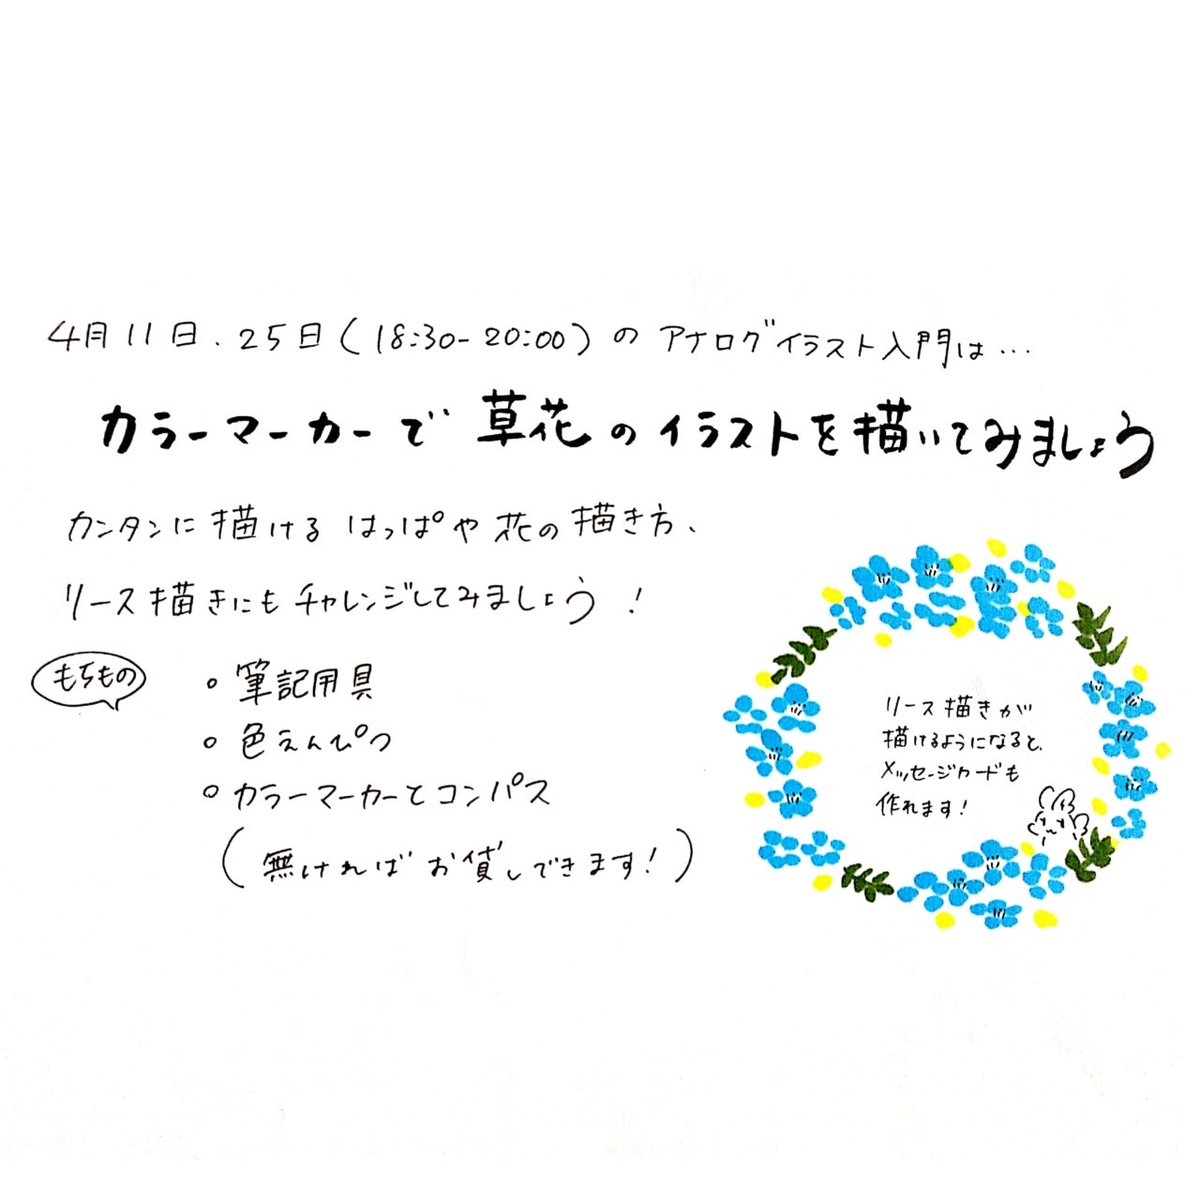 4月11日、25日(18:30-20:00)の アナログイラスト入門は…
カラーマーカーで 草花のイラストを描いてみましょう
カンタンに描ける はっぱや花の描き方、
リース描きにもチャレンジしてみましょう!
もちもの
○ 筆記用具
○ 色えんぴつ
○ カラーマーカーとコンパス
(無ければ お貸しできます!)
リース描きが
描けるようになると、
メッセージカードも
作れます!